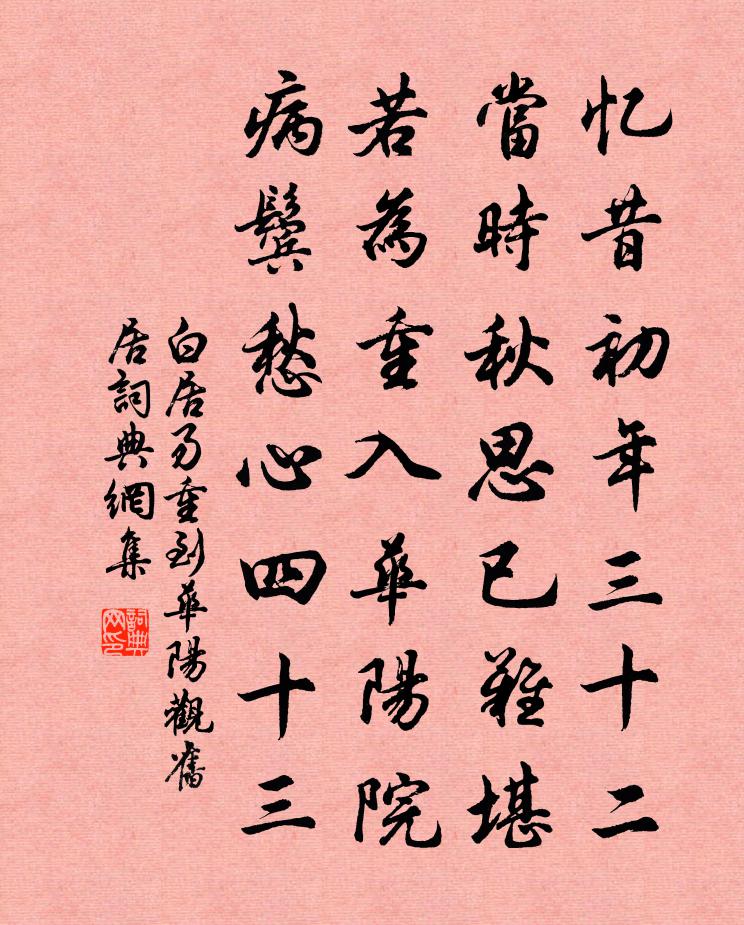 忆昔初年三十二
當時秋思已難堪
若為重入華陽院
病鬢愁心四十三
白居易重到華陽觀舊
居詞典網集
詞典
网印